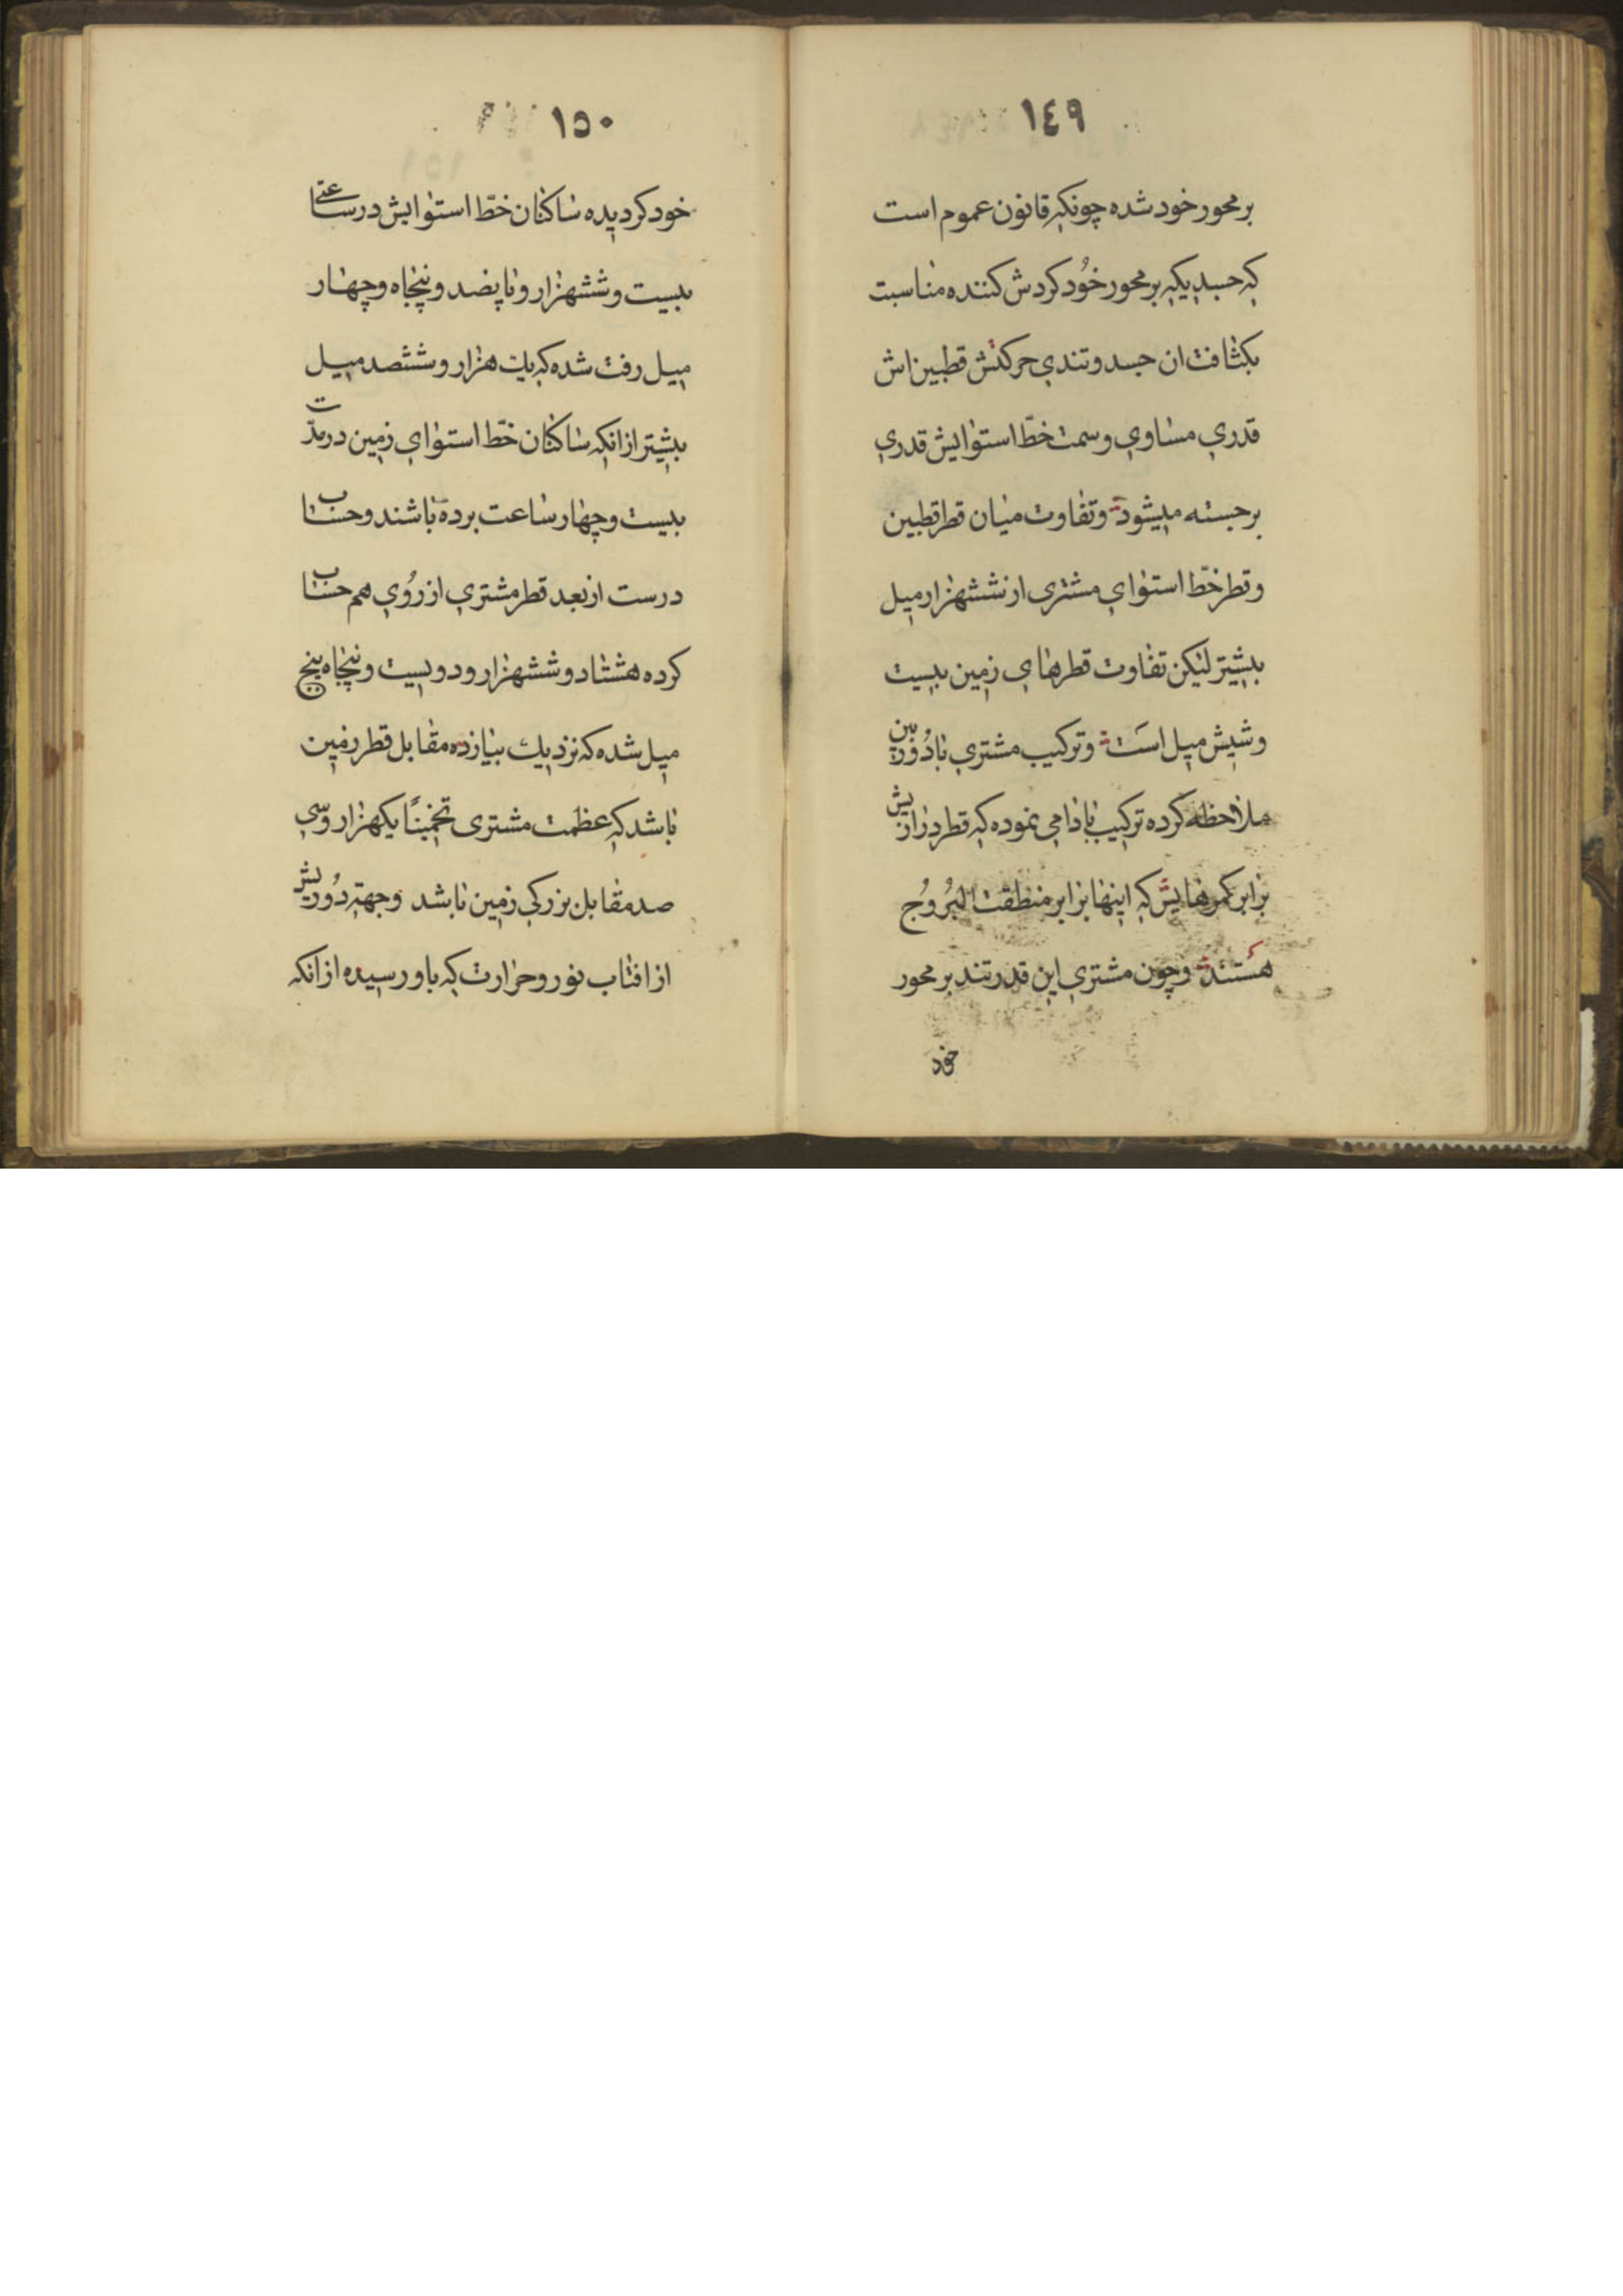 ١٤٩
بر محور خود شده چونکه قانون عموم است
که جسدیکه بر محور خُود کردش کننده مناسبت
بکثافت ان جسد و تندي حرکتش قطبین اش
قدري مساوي و سمت خطّ استوایش قدري
برجسته میشود و تفاوت میان قطر قطبین
و قطر خطّ استواي مشتری از ششهزار میل
بیشتر لیکن تفاوت قطرهاي زمین بیست
و شیش میل است و ترکیب مشتري با دُوربین
ملاحظه کرده ترکیب باذامی نموده که قطر درازیش
برابر کمرهایش که اینها برابر منطقت البُرُوُج
هستند و چون مشتري این قدر تند بر محور
خود
١٥٠
خود کردیده ساکنان خطّ استوایش در ساعتی
بیست و ششهزار و پانصد و پنجاه و چهار
میل رفت شده که یك هزار و ششصد میل
بیشتر از انکه ساکنان خطّ استواي زمین در مدّت
بیست و چهار ساعت برده باشند و حساب
درست از بعد قطر مشتري از رُوي هم حساب
کرده هشتاد و ششهزار و دویست و پنجاه پنج
میل شده که نزدیك بیازده مقابل قطر زمین
باشد که عظمت مشتری تخمینًا یکهزار و سي
صد مقابل بزرکي زمین باشد و جهته دُوریش
از افتاب نور و حرارت که باو رسیده از انکه